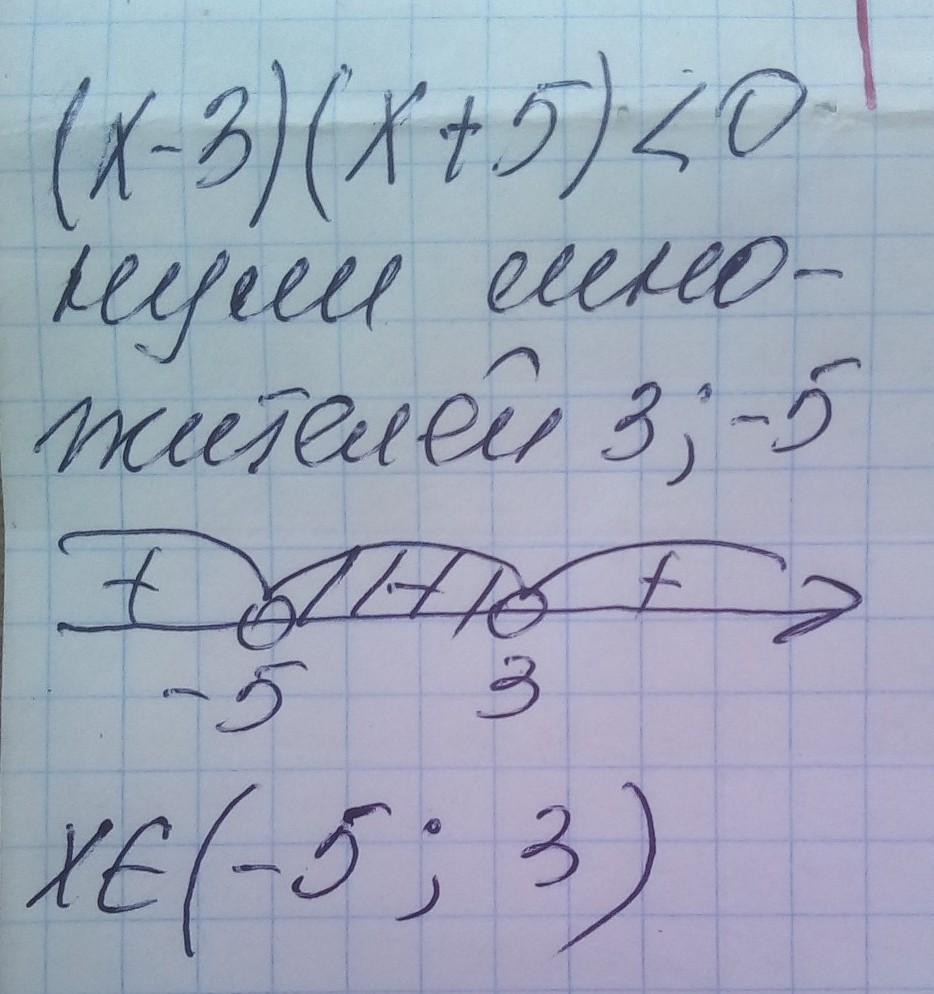 (x-3)(x+5)<0
нули мно-
жителей 3;-5
+ - +
-5 3
x∈(-5; 3)